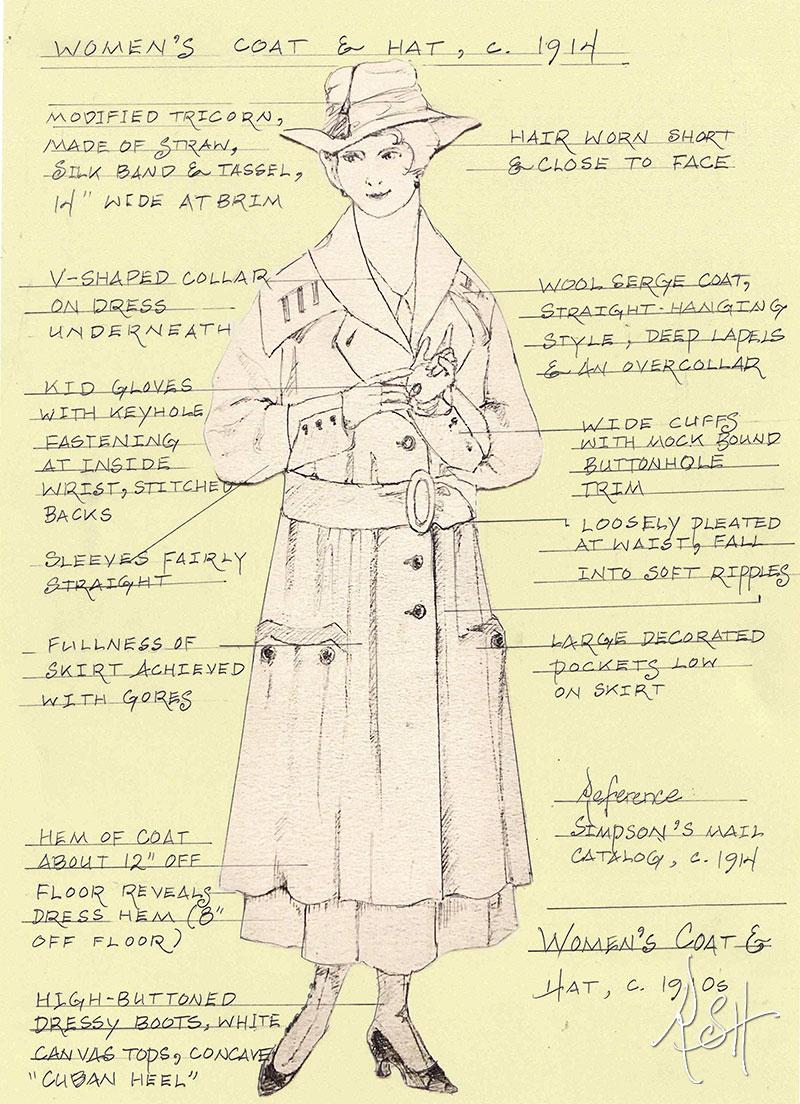 WOMEN'S COAT & HAT, c. 1914
MODIFIED TRICORN,
MADE OF STRAW,
SILK BAND & TASSEL,
14" WIDE AT BRIM
HAIR WORN SHORT
& CLOSE TO FACE
V-SHAPED COLLAR
ON DRESS
UNDERNEATH
WOOL SERGE COAT,
STRAIGHT-HANGING
STYLE, DEEP LAPELS
& AN OVERCOLLAR
KID GLOVES
WITH KEYHOLE
FASTENING
AT INSIDE
WRIST, STITCHED
BACKS
WIDE CUFFS
WITH MOCK BOUND
BUTTONHOLE
TRIM
SLEEVES FAIRLY
STRAIGHT
LOOSELY PLEATED
AT WAIST, FALL
INTO SOFT RIPPLES
FULLNESS OF
SKIRT ACHIEVED
WITH GORES
LARGE DECORATED
POCKETS LOW
ON SKIRT
HEM OF COAT
ABOUT 12" OFF
FLOOR REVEALS
DRESS HEM (8"
OFF FLOOR)
HIGH-BUTTONED
DRESSY BOOTS, WHITE
CANVAS TOPS, CONCAVE
"CUBAN HEEL"
Reference
SIMPSON'S MAIL
CATALOG, c. 1914
WOMEN'S COAT &
HAT, c. 1910s
RSH